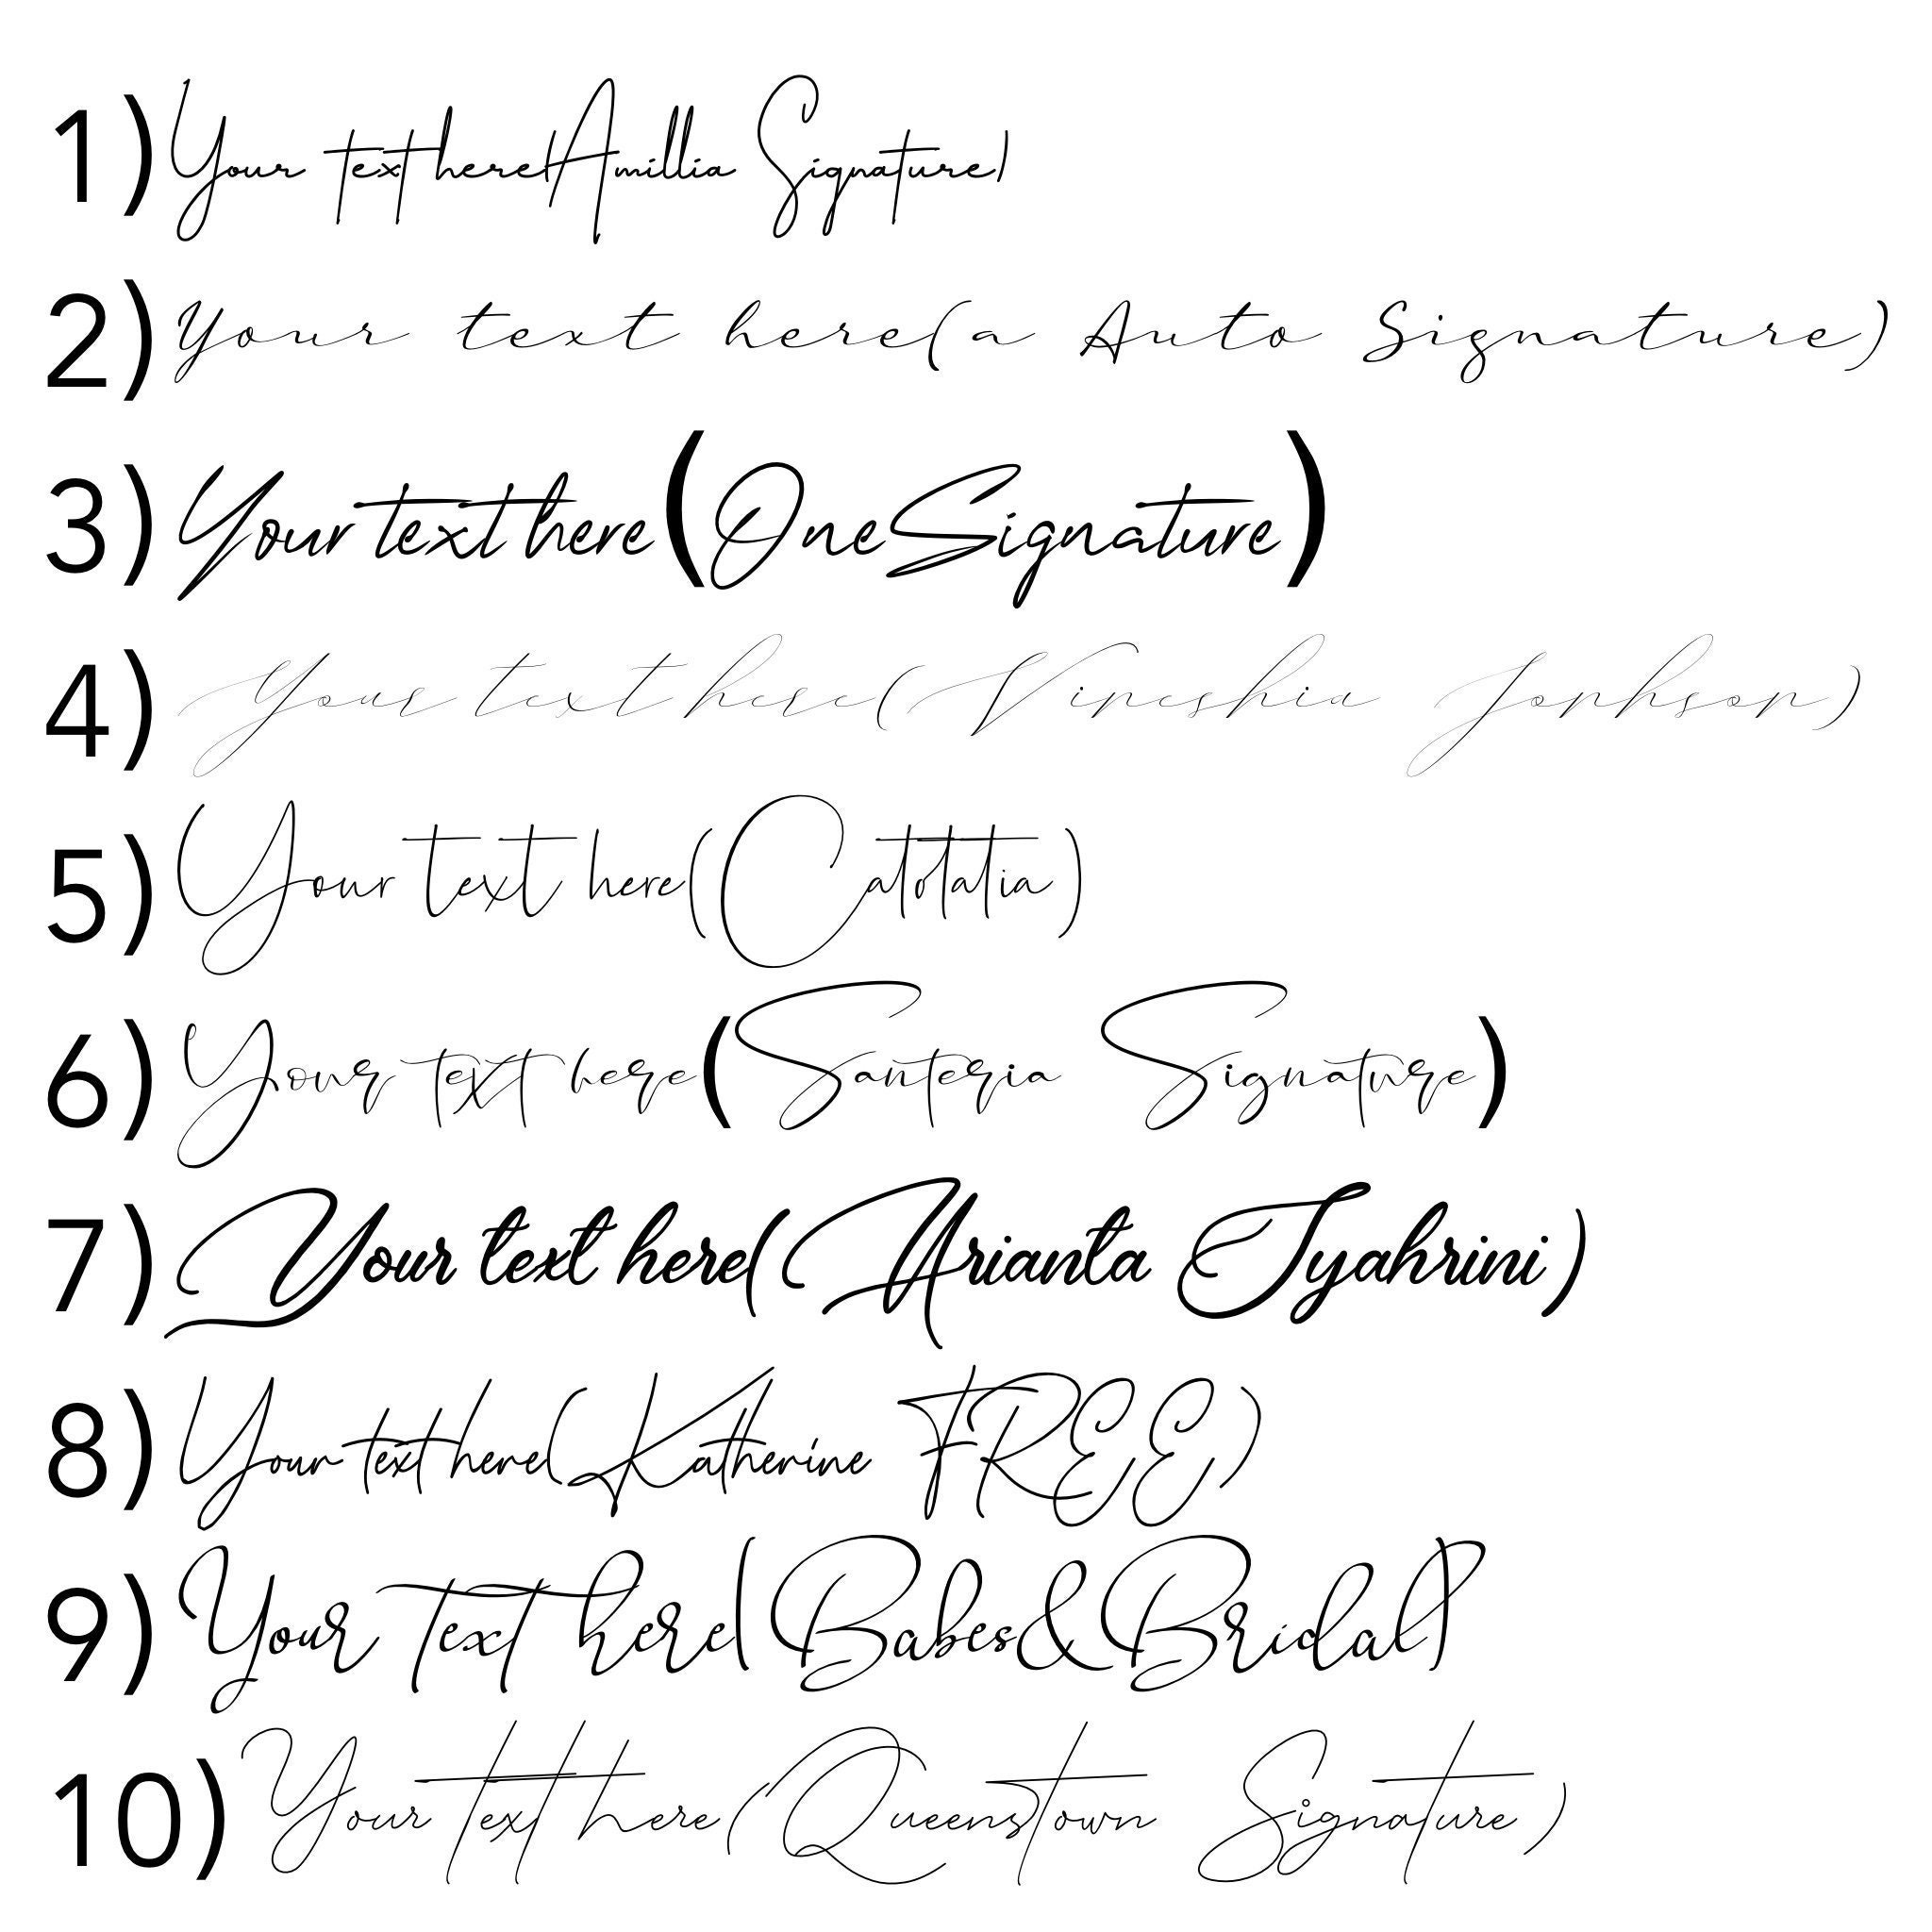 1) Your text here(Amillia Signature)
2) Your text here(a Auto Signature)
3) Your text here(One Signature)
4) Your text here(Vineshia Jonhson)
5) Your text here(Catotatia)
6) Your text here(Santeria Signature)
7) Your text here(Arianta Tyahrini)
8) Your text here(Katherine FREE)
9) Your text here(Babes&Bridal)
10) Your text here(Queenstown Signature)